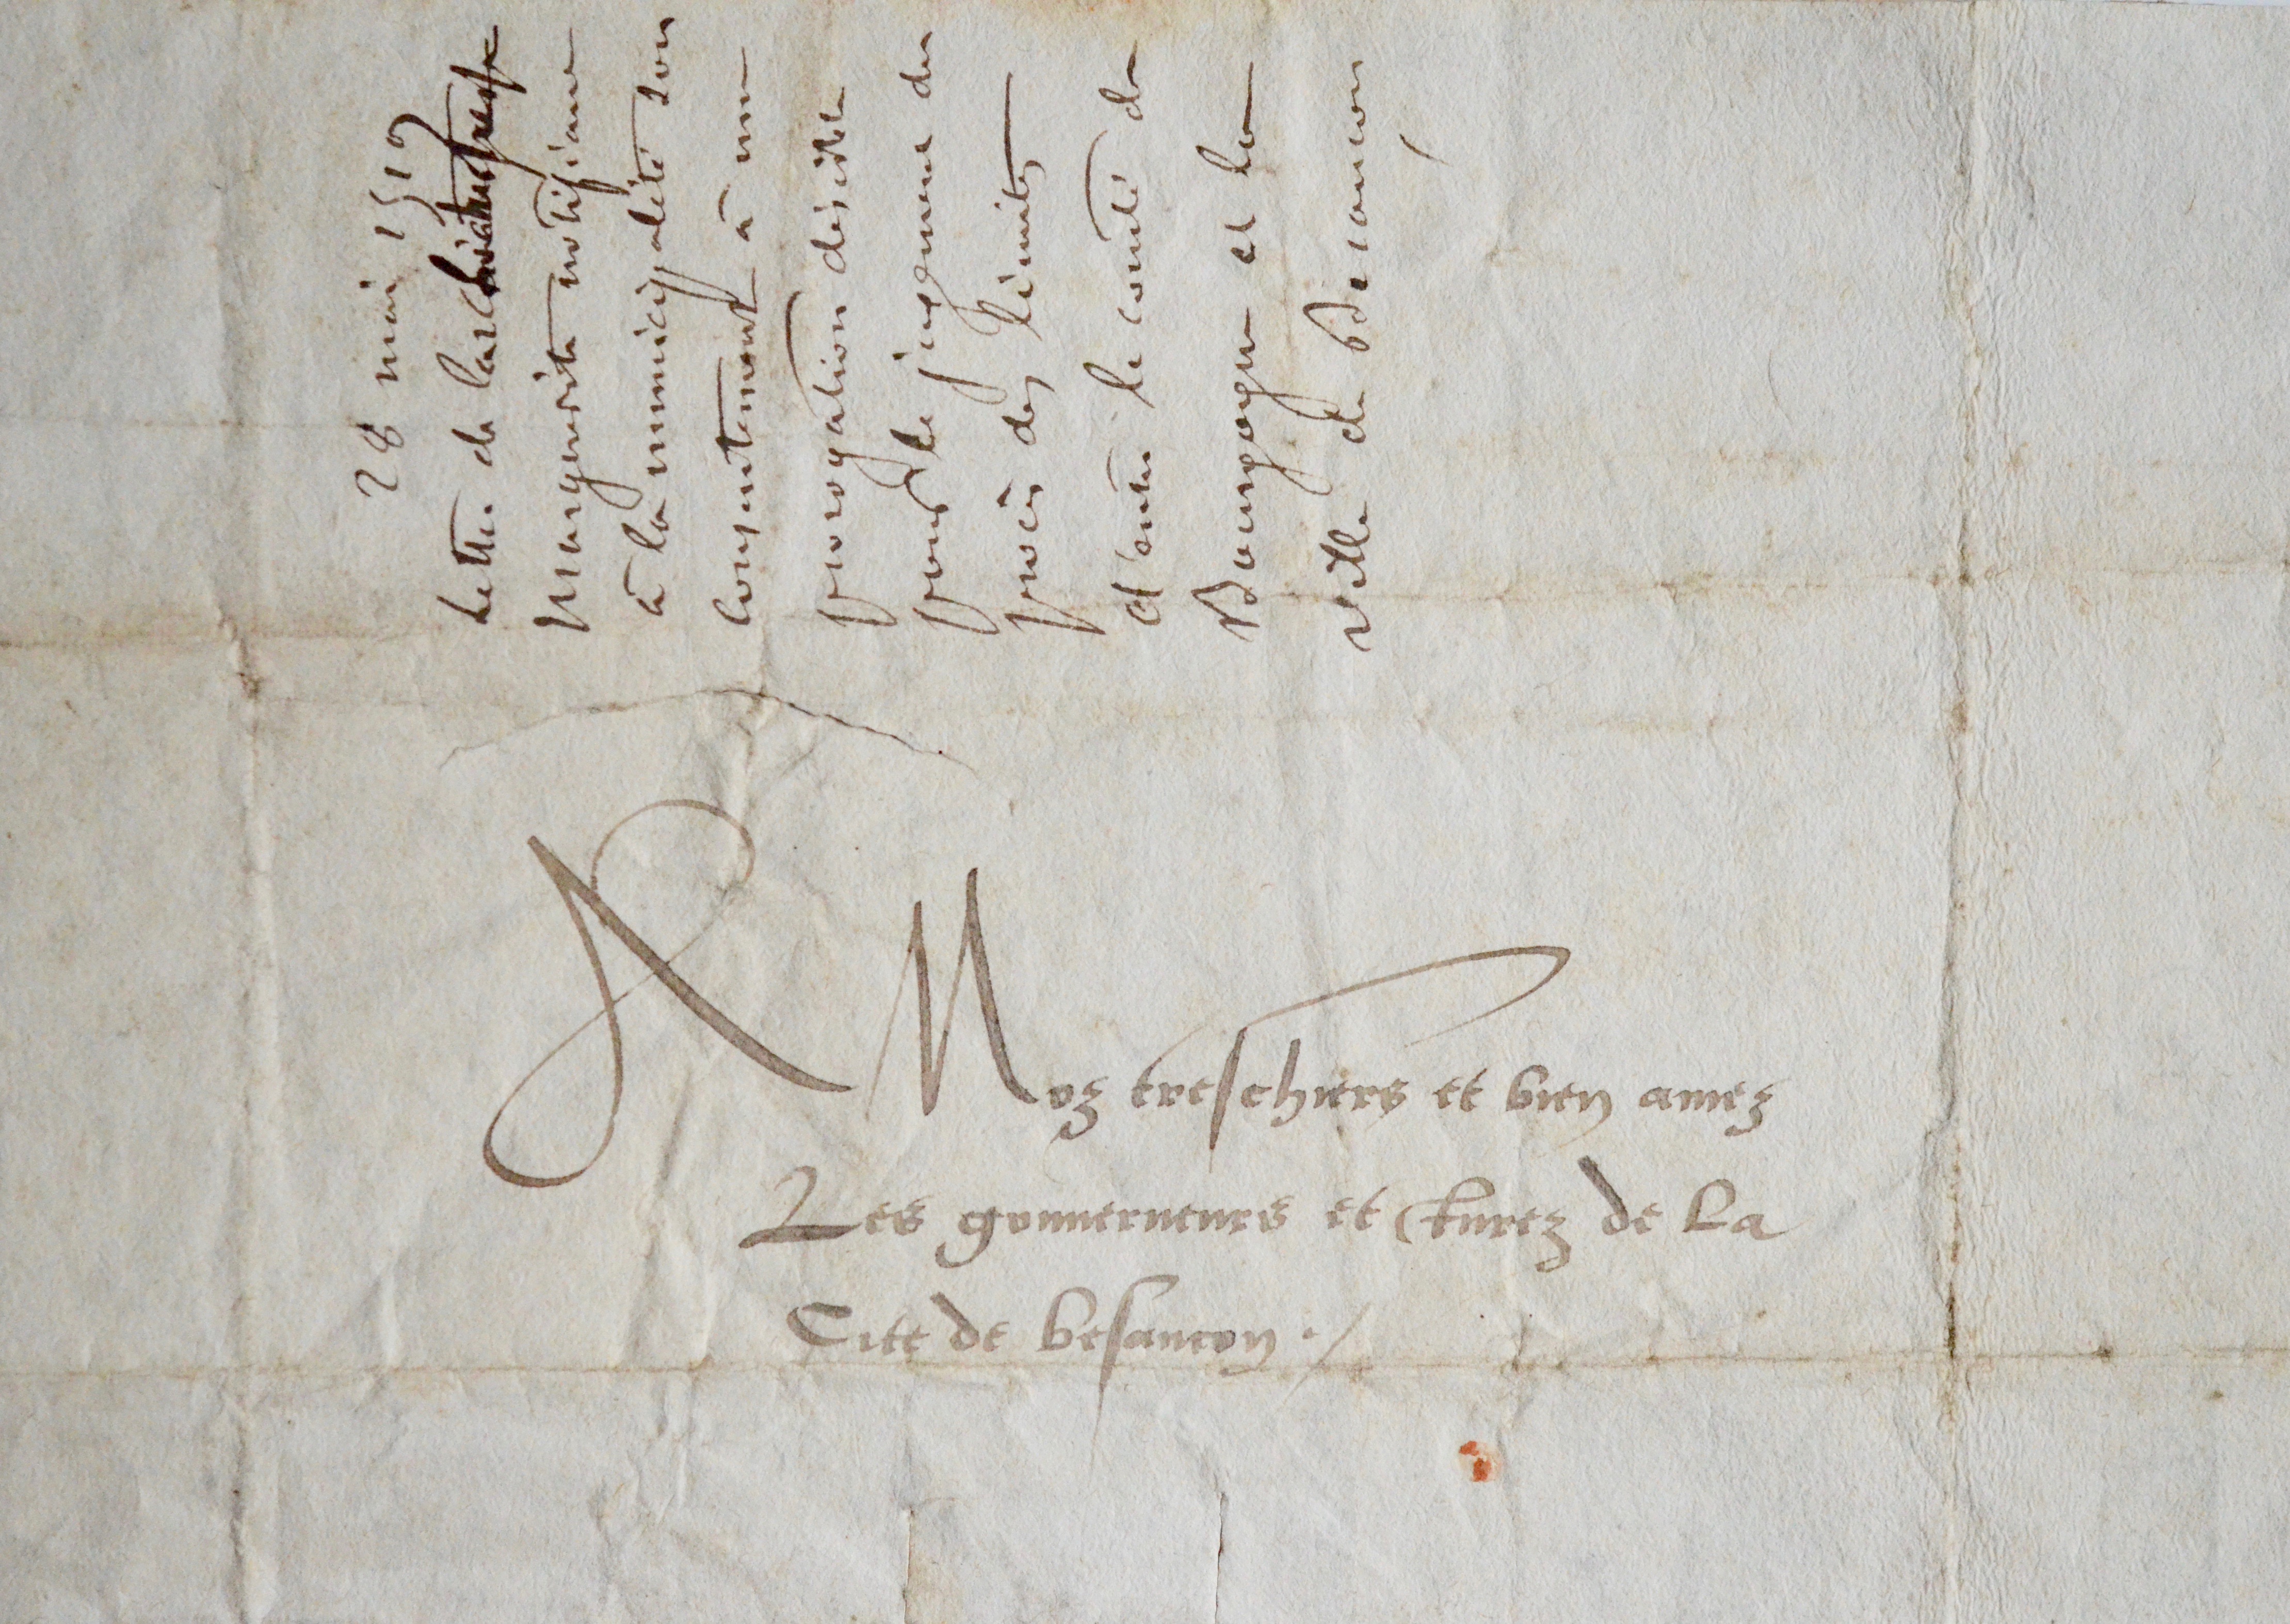 28 mai 1519
Lettre de l'archiduchesse
Marguerite notifiant
à la municipalité son
consentement à une
prorogation desirée
pour le jugement du
procès des limites
d'entre le comté de
Bourgogne et la
ville de Besancon
A Noz treschiers et bien amez
Les gouverneurs et Jurez de La
Cite de besancon ./